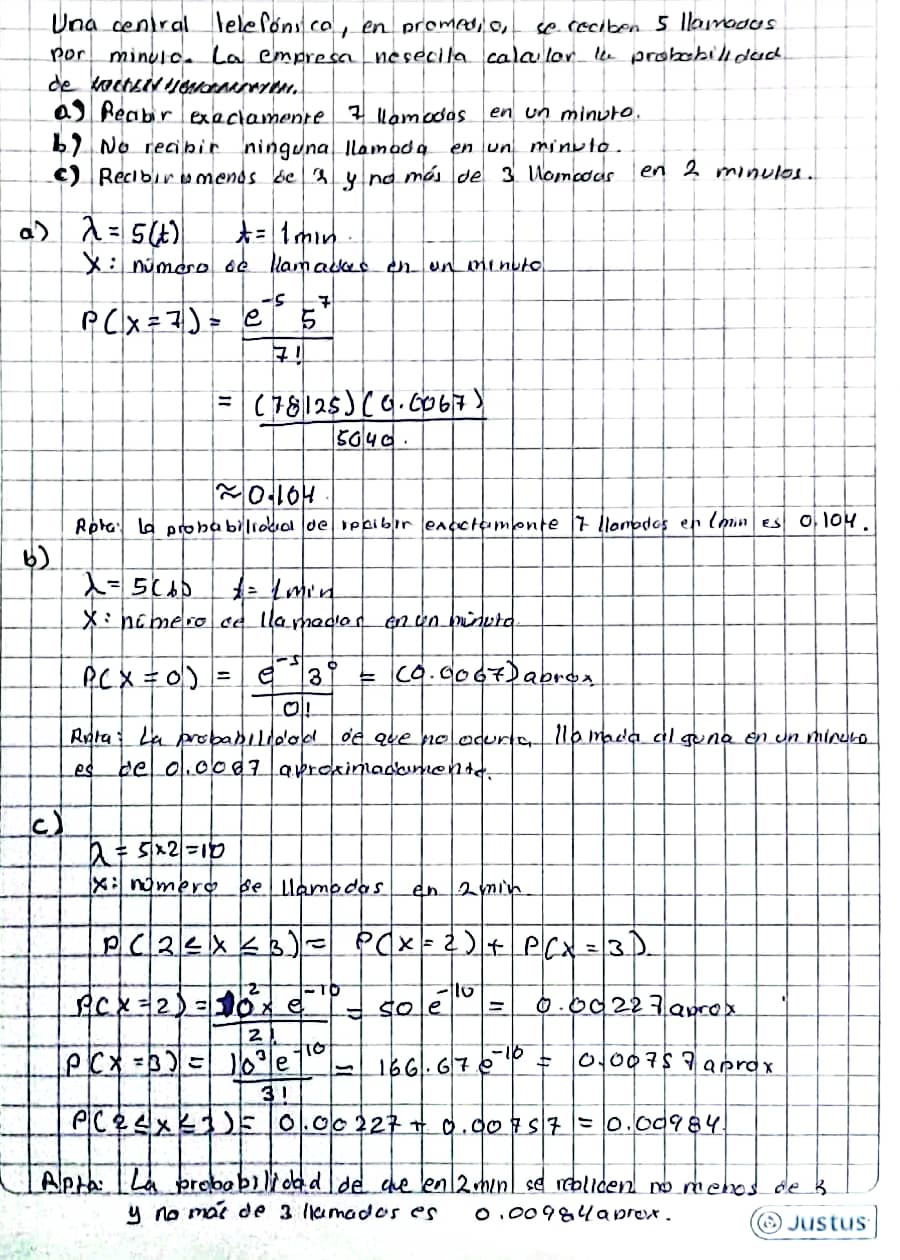 Una central telefónica, en promedio, se reciben 5 llamadas
por minuto. La empresa nesecita calcular la probabilidad
de
a) Recibir exactamente 7 llamadas en un minuto.
b) No recibir ninguna llamada en un minuto.
c) Recibir menos de 3 y no más de 3 llamadas en 2 minutos.
a) λ = 5(t) t = 1 min.
X: número de llamadas en un minuto
P(X=7) = e^-5 5^7 / 7!
= (78125)(0.0067) / 5040.
≈ 0.104
Rpta: La probabilidad de recibir exactamente 7 llamadas en 1min es 0.104.
b)
λ = 5(t) t = 1 min
X: número de llamadas en un minuto
P(X=0) = e^-5 3^0 / 0! = (0.0067) aprox
Rpta: La probabilidad de que no ocurra llamada alguna en un minuto
es de 0.0067 aproximadamente.
c)
λ = 5x2 = 10
X: número de llamadas en 2 min
P(2 ≤ X ≤ 3) = P(X=2) + P(X=3)
P(X=2) = 10^2 x e^-10 / 2! = 50 e^-10 = 0.00227 aprox
P(X=3) = 10^3 e^-10 / 3! = 166.67 e^-10 = 0.00757 aprox
P(2 ≤ X ≤ 3) = 0.00227 + 0.00757 = 0.00984
Rpta: La probabilidad de que en 2min se realicen no menos de
y no más de 3 llamadas es 0.00984 aprox.
Justus